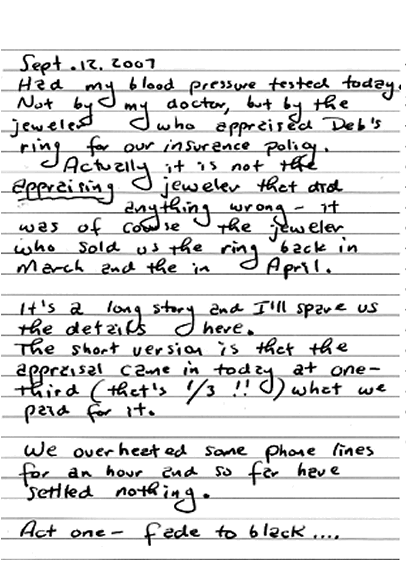 Sept. 12. 2007
Had my blood pressure tested today.
Not by my doctor, but by the
jeweler who appraised Deb's
ring for our insurance policy.
Actually it is not the
appraising jeweler that did
anything wrong - it
was of course the jeweler
who sold us the ring back in
March and the in April.
It's a long story and I'll spare us
the details here.
The short version is that the
appraisal came in today at one-
third (that's 1/3 !!) what we
paid for it.
We overheated some phone lines
for an hour and so far have
settled nothing.
Act one - fade to black....